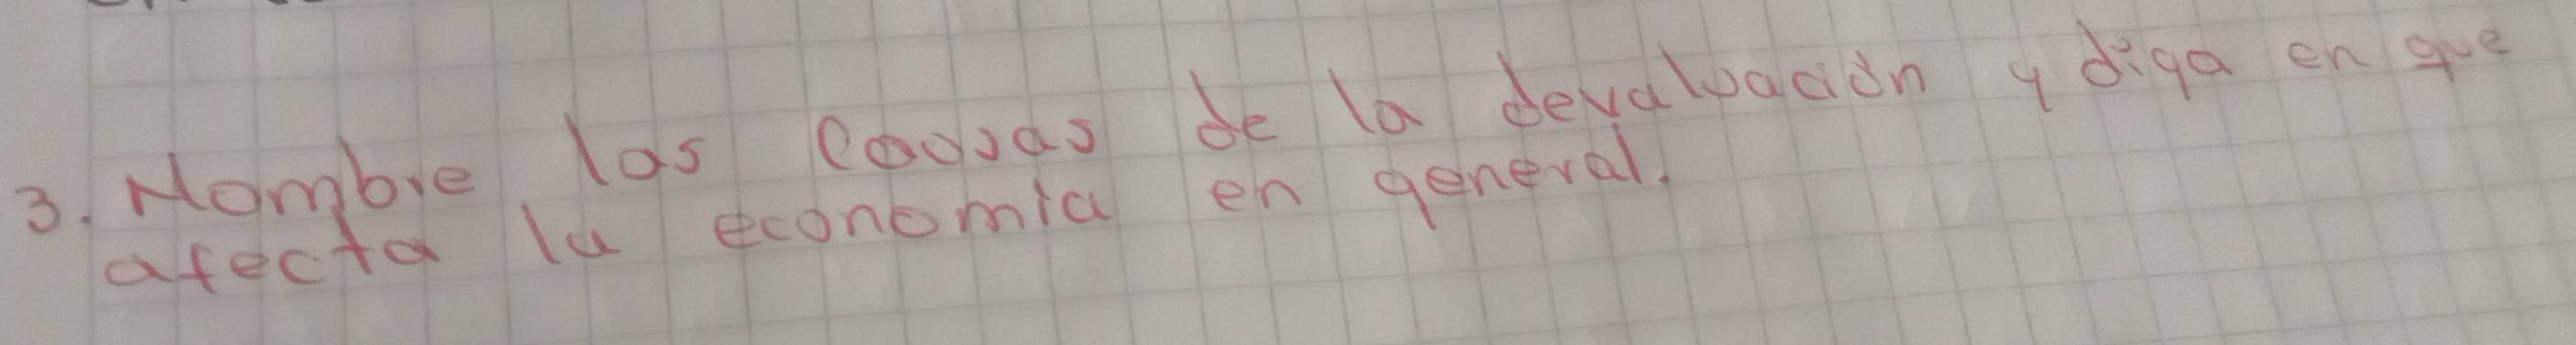 3. Nombre las Causas de la devaluación y diga en que
afecta la economia en general.